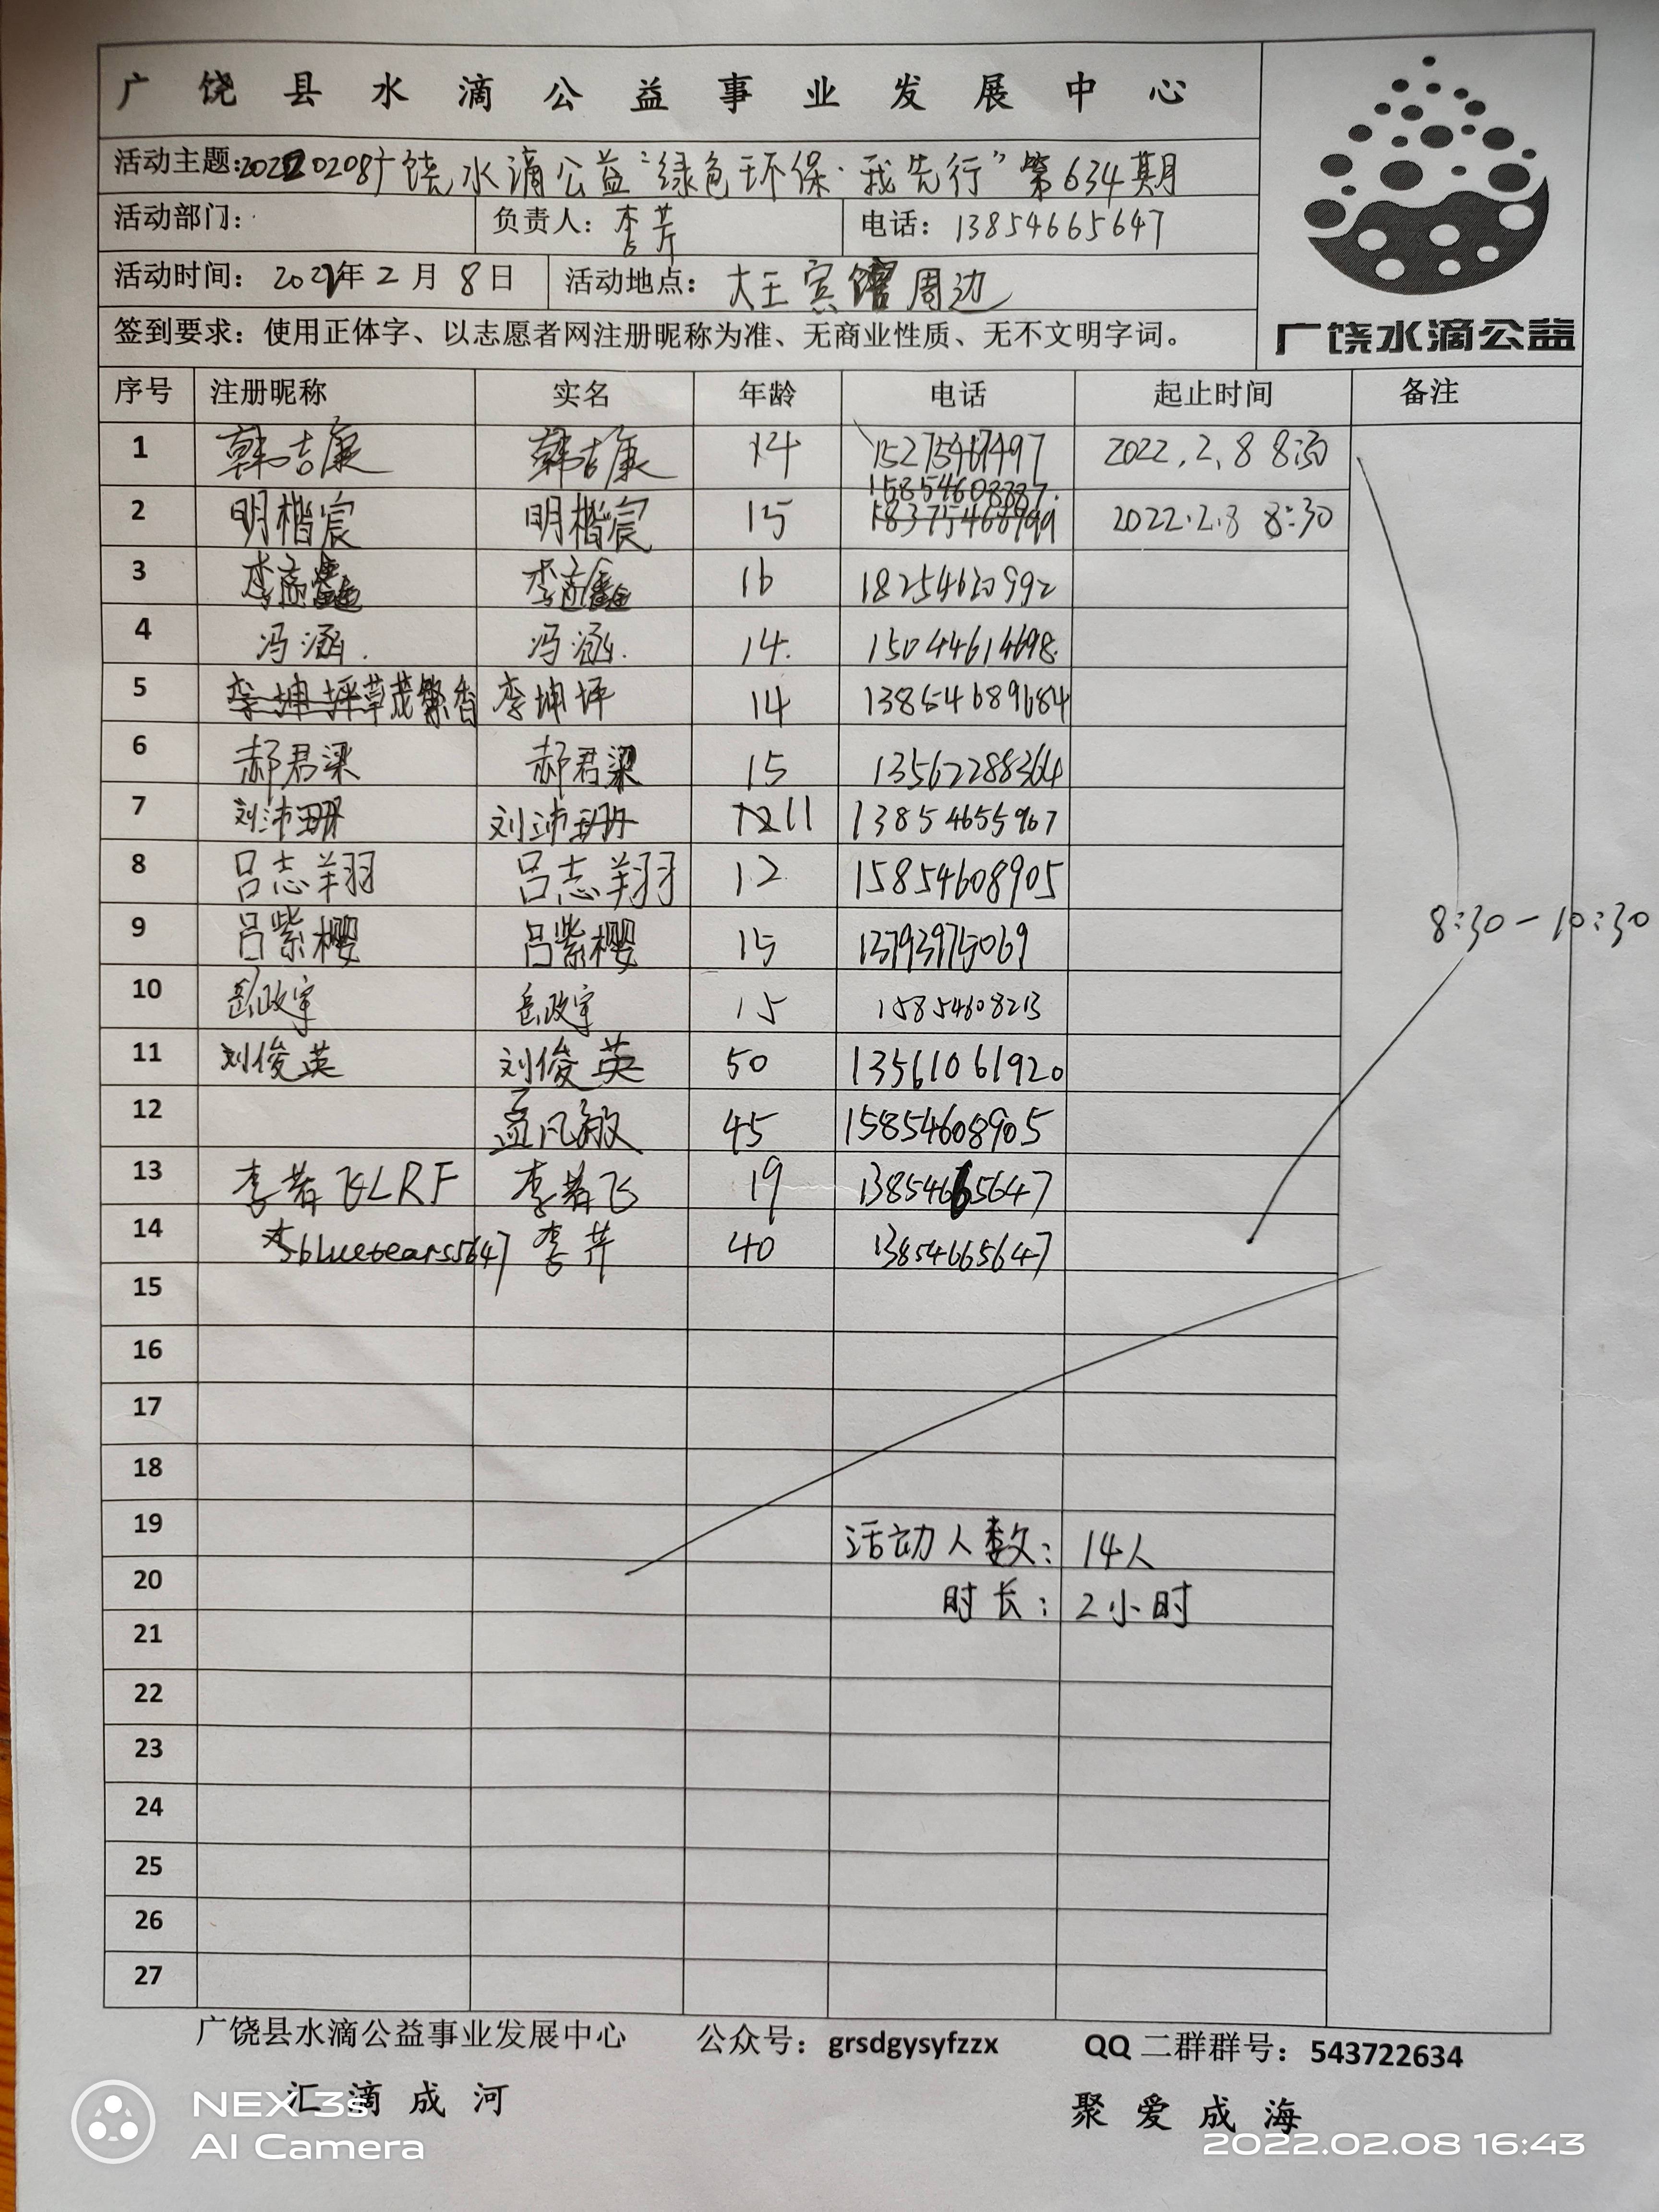 广饶县水滴公益事业发展中心
活动主题:20220208广饶水滴公益“绿色环保·我先行”第634期
活动部门: 负责人: 李芹 电话: 13854665647
活动时间: 2022年2月8日 活动地点: 大王宾馆周边
签到要求: 使用正体字、以志愿者网注册昵称为准、无商业性质、无不文明字词。
广饶水滴公益
序号 注册昵称 实名 年龄 电话 起止时间 备注
1 韩吉康 韩吉康 14 15275467497 2022.2.8 8:30
2 明楷宸 明楷宸 15 15854608887 2022.2.8 8:30
3 16 18254620992
4 冯涵. 冯涵. 14. 15044614698
5 李坤坪草茂繁香 李坤坪 14 13854689684
6 郝君梁 郝君梁 15 13562288364
7 刘沛珊 刘沛珊 11 13854655967
8 吕志翔 吕志翔 12 15854608905
9 吕紫樱 吕紫樱 15 13793975069
8:30-10:30
10 岳政宇 岳政宇 15 15854608213
11 刘俊英 刘俊英 50 13561061920
12 孟凡敏 45 15854608905
13 李若飞LRF 李若飞 19 13854665647
14 bluetears5647 李芹 40 13854665647
15
16
17
18
19 活动人数: 14人
20 时长: 2小时
21
22
23
24
25
26
27
广饶县水滴公益事业发展中心 公众号: grsdgysyfzzx QQ二群群号: 543722634
汇滴成河 聚爱成海
NEX 3s
AI Camera
2022.02.08 16:43